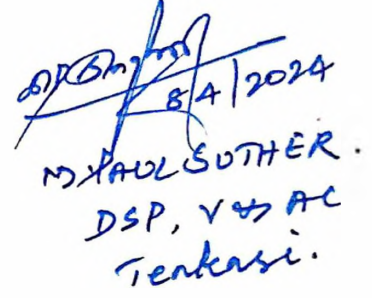 8/4/2024
M PAUL SUTHER.
DSP, V & AC
Tenkasi.